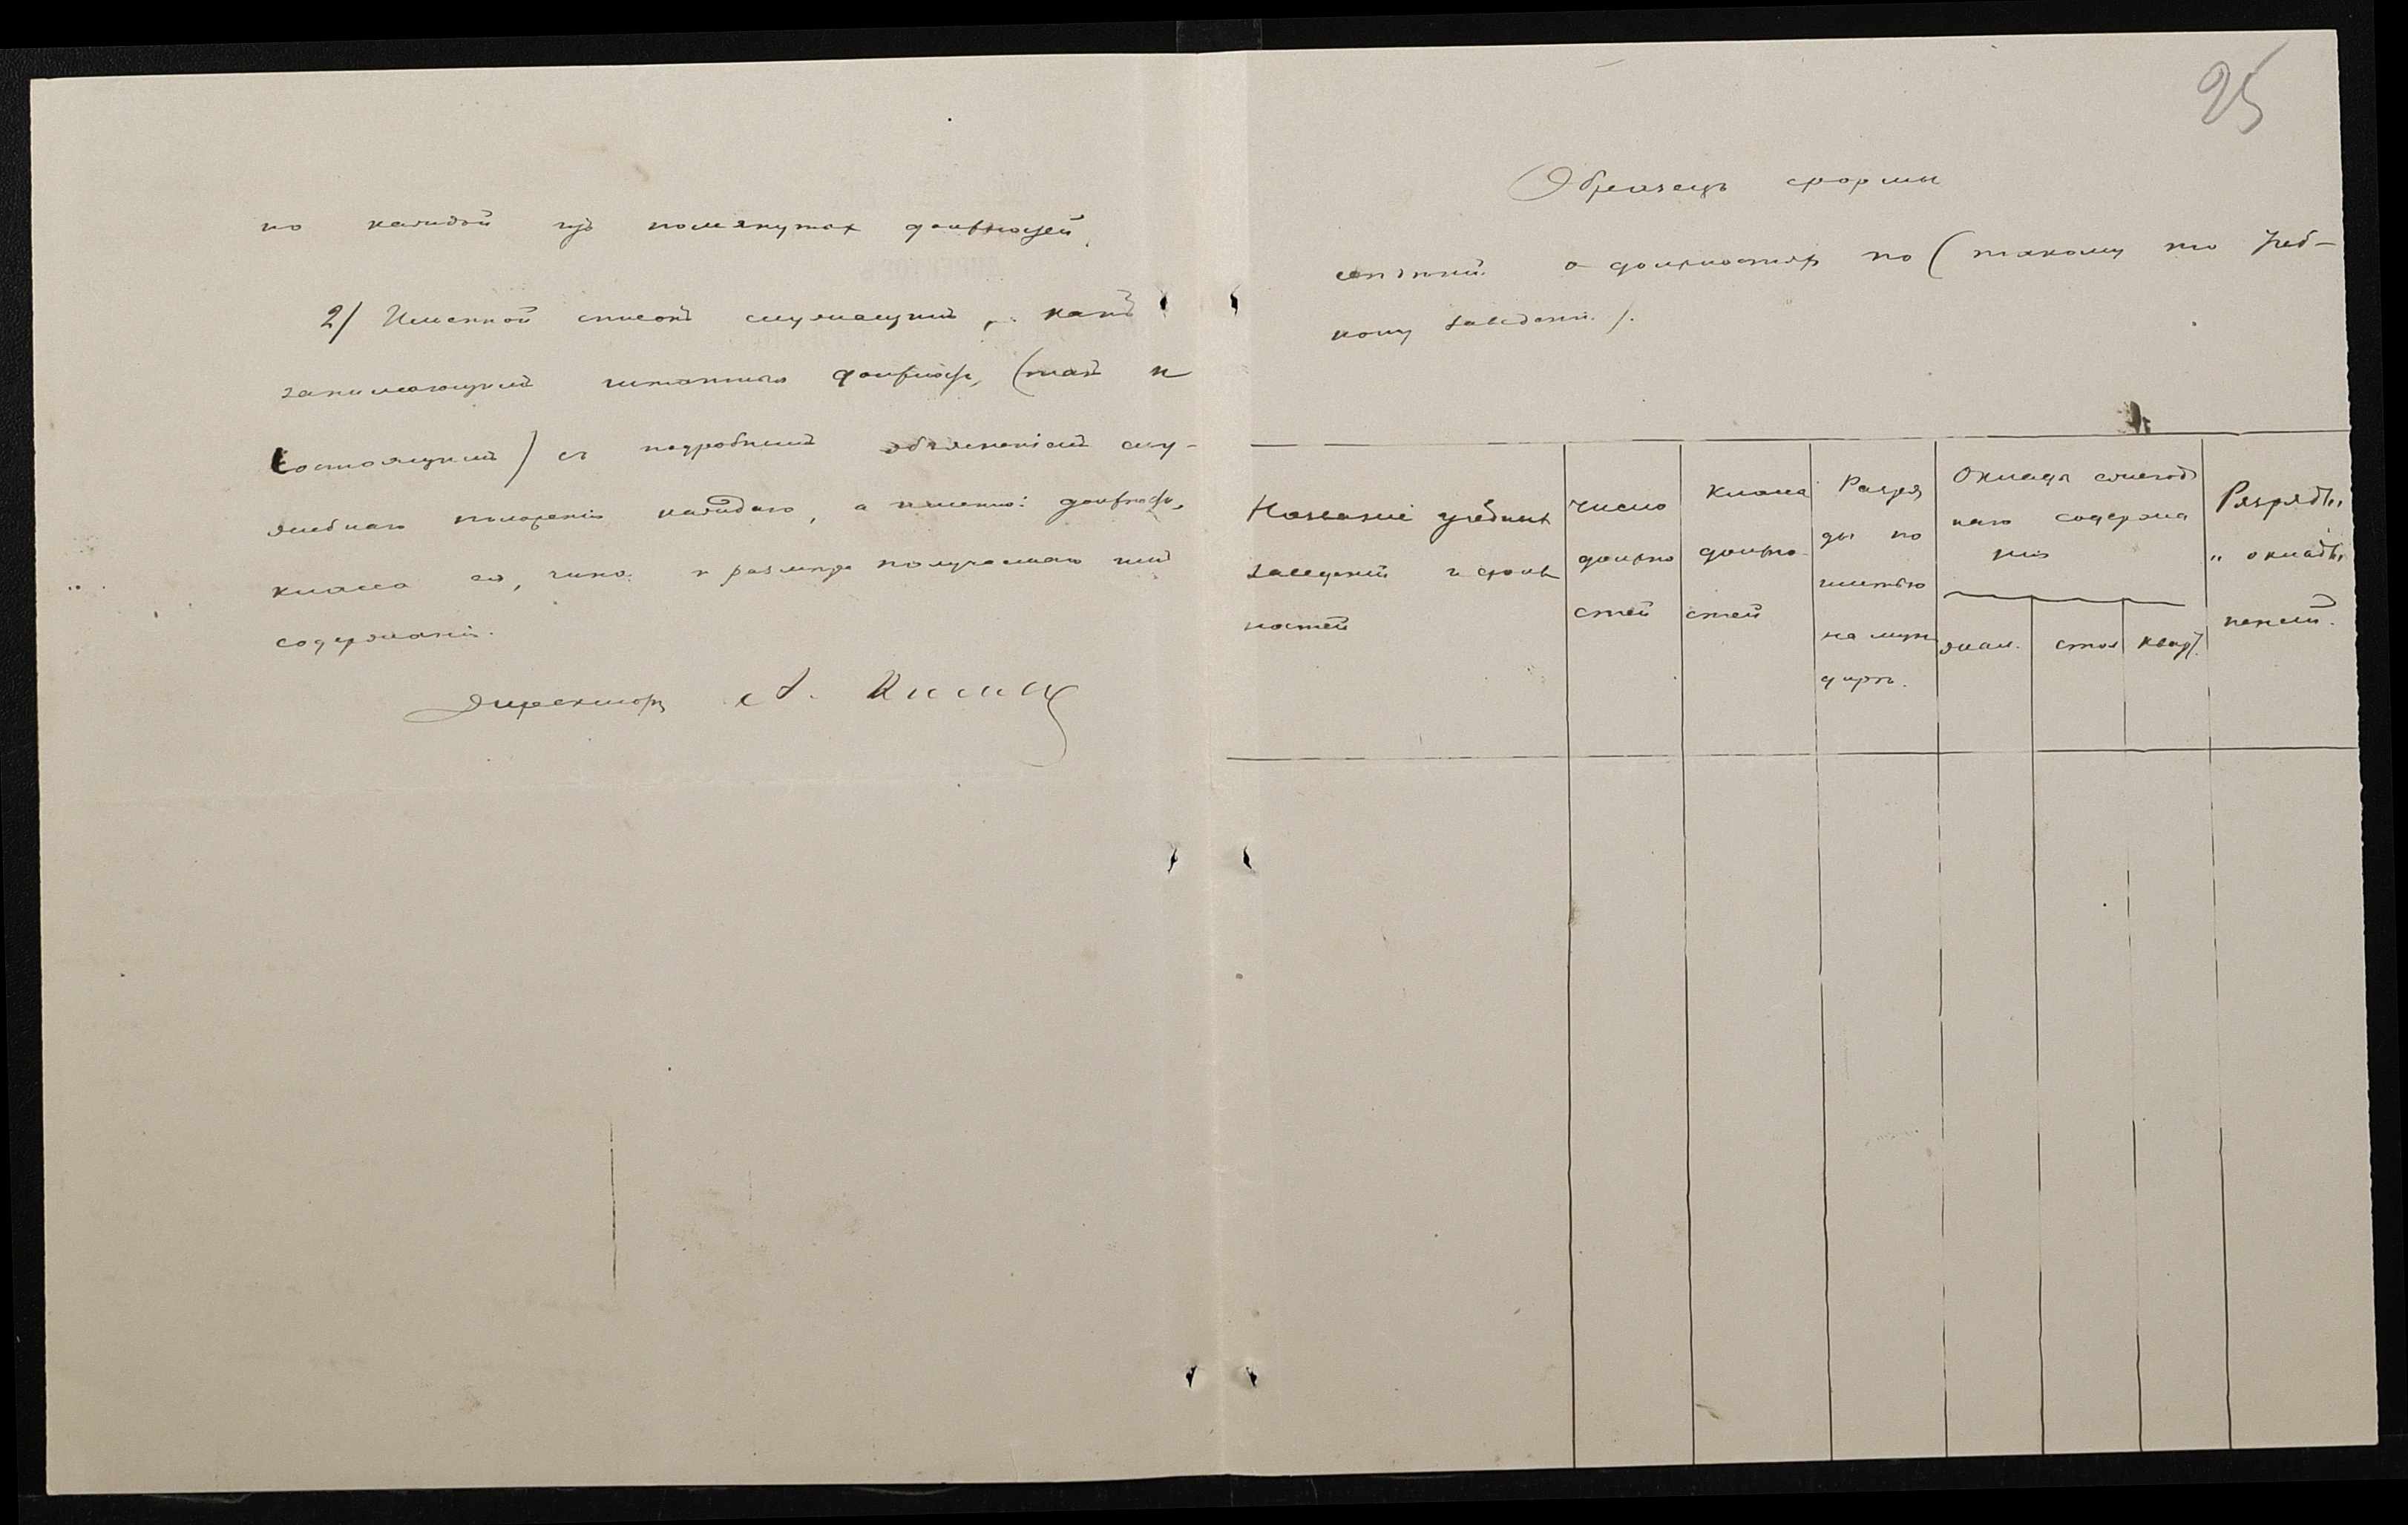 по каждой изъ помянутыхъ должностей.
2/ Именной списокъ служащимъ, какъ
занимающимъ штатныя должности, (такъ и
состоящимъ) съ подробнымъ объясненіемъ слу-
жебнаго положенія каждаго, а именно: должности,
класса ея, чина и размѣра получаемаго имъ
содержанія.
Директоръ А.
25
Образецъ формы
о должностяхъ по (такому то учеб-
ному заведенію).
Названіе учебныхъ
заведеній и долж
ностей
Число
должно
стей
Класса
должно
стей
Разря
ды по
шитью
на мун
дирѣ.
Оклады ежегод
наго содержа
нія
жал.
стол
кварт.
Разряды
и оклады
пенсій.